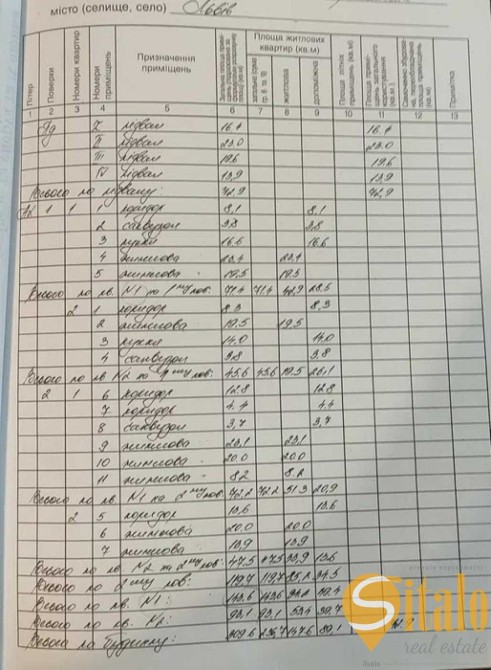 місто (селище, село) Львів
Літер
Поверхи
Номери квартир
Номери приміщень
Призначення приміщень
Площа житлових квартир (кв.м)
житлова
допоміжна
Примітка
1 2 3 4 5 6 7 8 9 10 11 12 13
Пд I підвал 16.4 16.4
II підвал 23.0 23.0
III підвал 19.6 19.6
IV підвал 13.9 13.9
Всього по підвалу: 72,9 72,9
1 1 1 коридор 8,1 8.1
2 санвузол 3,8 3,8
3 кухня 16.6 16.6
4 житлова 23,4 23,4
5 житлова 19,5 19.5
Всього по кв. N1 на 1му пов: 71.4 71.4 42,9 28.5
2 1 коридор 8.3 8.3
2 житлова 19.5 19.5
3 кухня 14.0 14.0
4 санвузол 3.8 3.8
Всього по кв. N2 на 1му пов: 45.6 45.6 19.5 26,1
2 1 6 коридор 12.8 12.8
7 коридор 4.4 4,4
8 санвузол 3,7 3,7
9 житлова 23,1 23,1
10 житлова 20.0 20.0
11 житлова 8.2 8.2
Всього по кв. N1 на 2му пов: 72,2 72,2 51.3 20,9
2 5 коридор 13,6 13,6
6 житлова 20,0 20.0
7 житлова 13,9 13,9
Всього по кв. N2 на 2му пов: 47,5 47.5 33,9 13.6
Всього по 2му пов: 119,7 119,7 85,2 34.5
Всього по кв. N1: 143,6 143.6
Всього по кв. N2: 93,1 93,1 53.4 39,7
Всього по будинку: 309.6 236,7 147.6 89,1
Sitalo
real estate